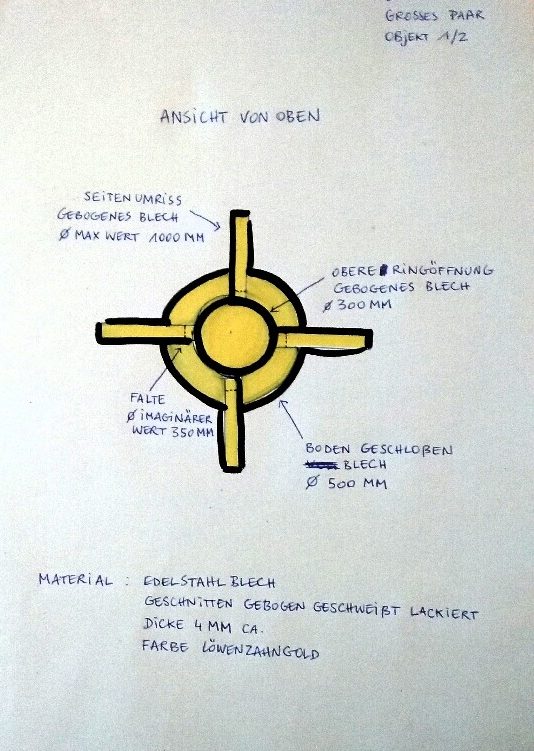 GROSSES PAAR
OBJEKT 1/2
ANSICHT VON OBEN
SEITENUMRISS
GEBOGENES BLECH
Ø MAX WERT 1000 MM
OBERE RINGÖFFNUNG
GEBOGENES BLECH
Ø 300 MM
FALTE
Ø IMAGINÄRER
WERT 350 MM
BODEN GESCHLOßEN
BLECH
Ø 500 MM
MATERIAL : EDELSTAHLBLECH
GESCHNITTEN GEBOGEN GESCHWEIßT LACKIERT
DICKE 4 MM CA.
FARBE LÖWENZAHNGOLD